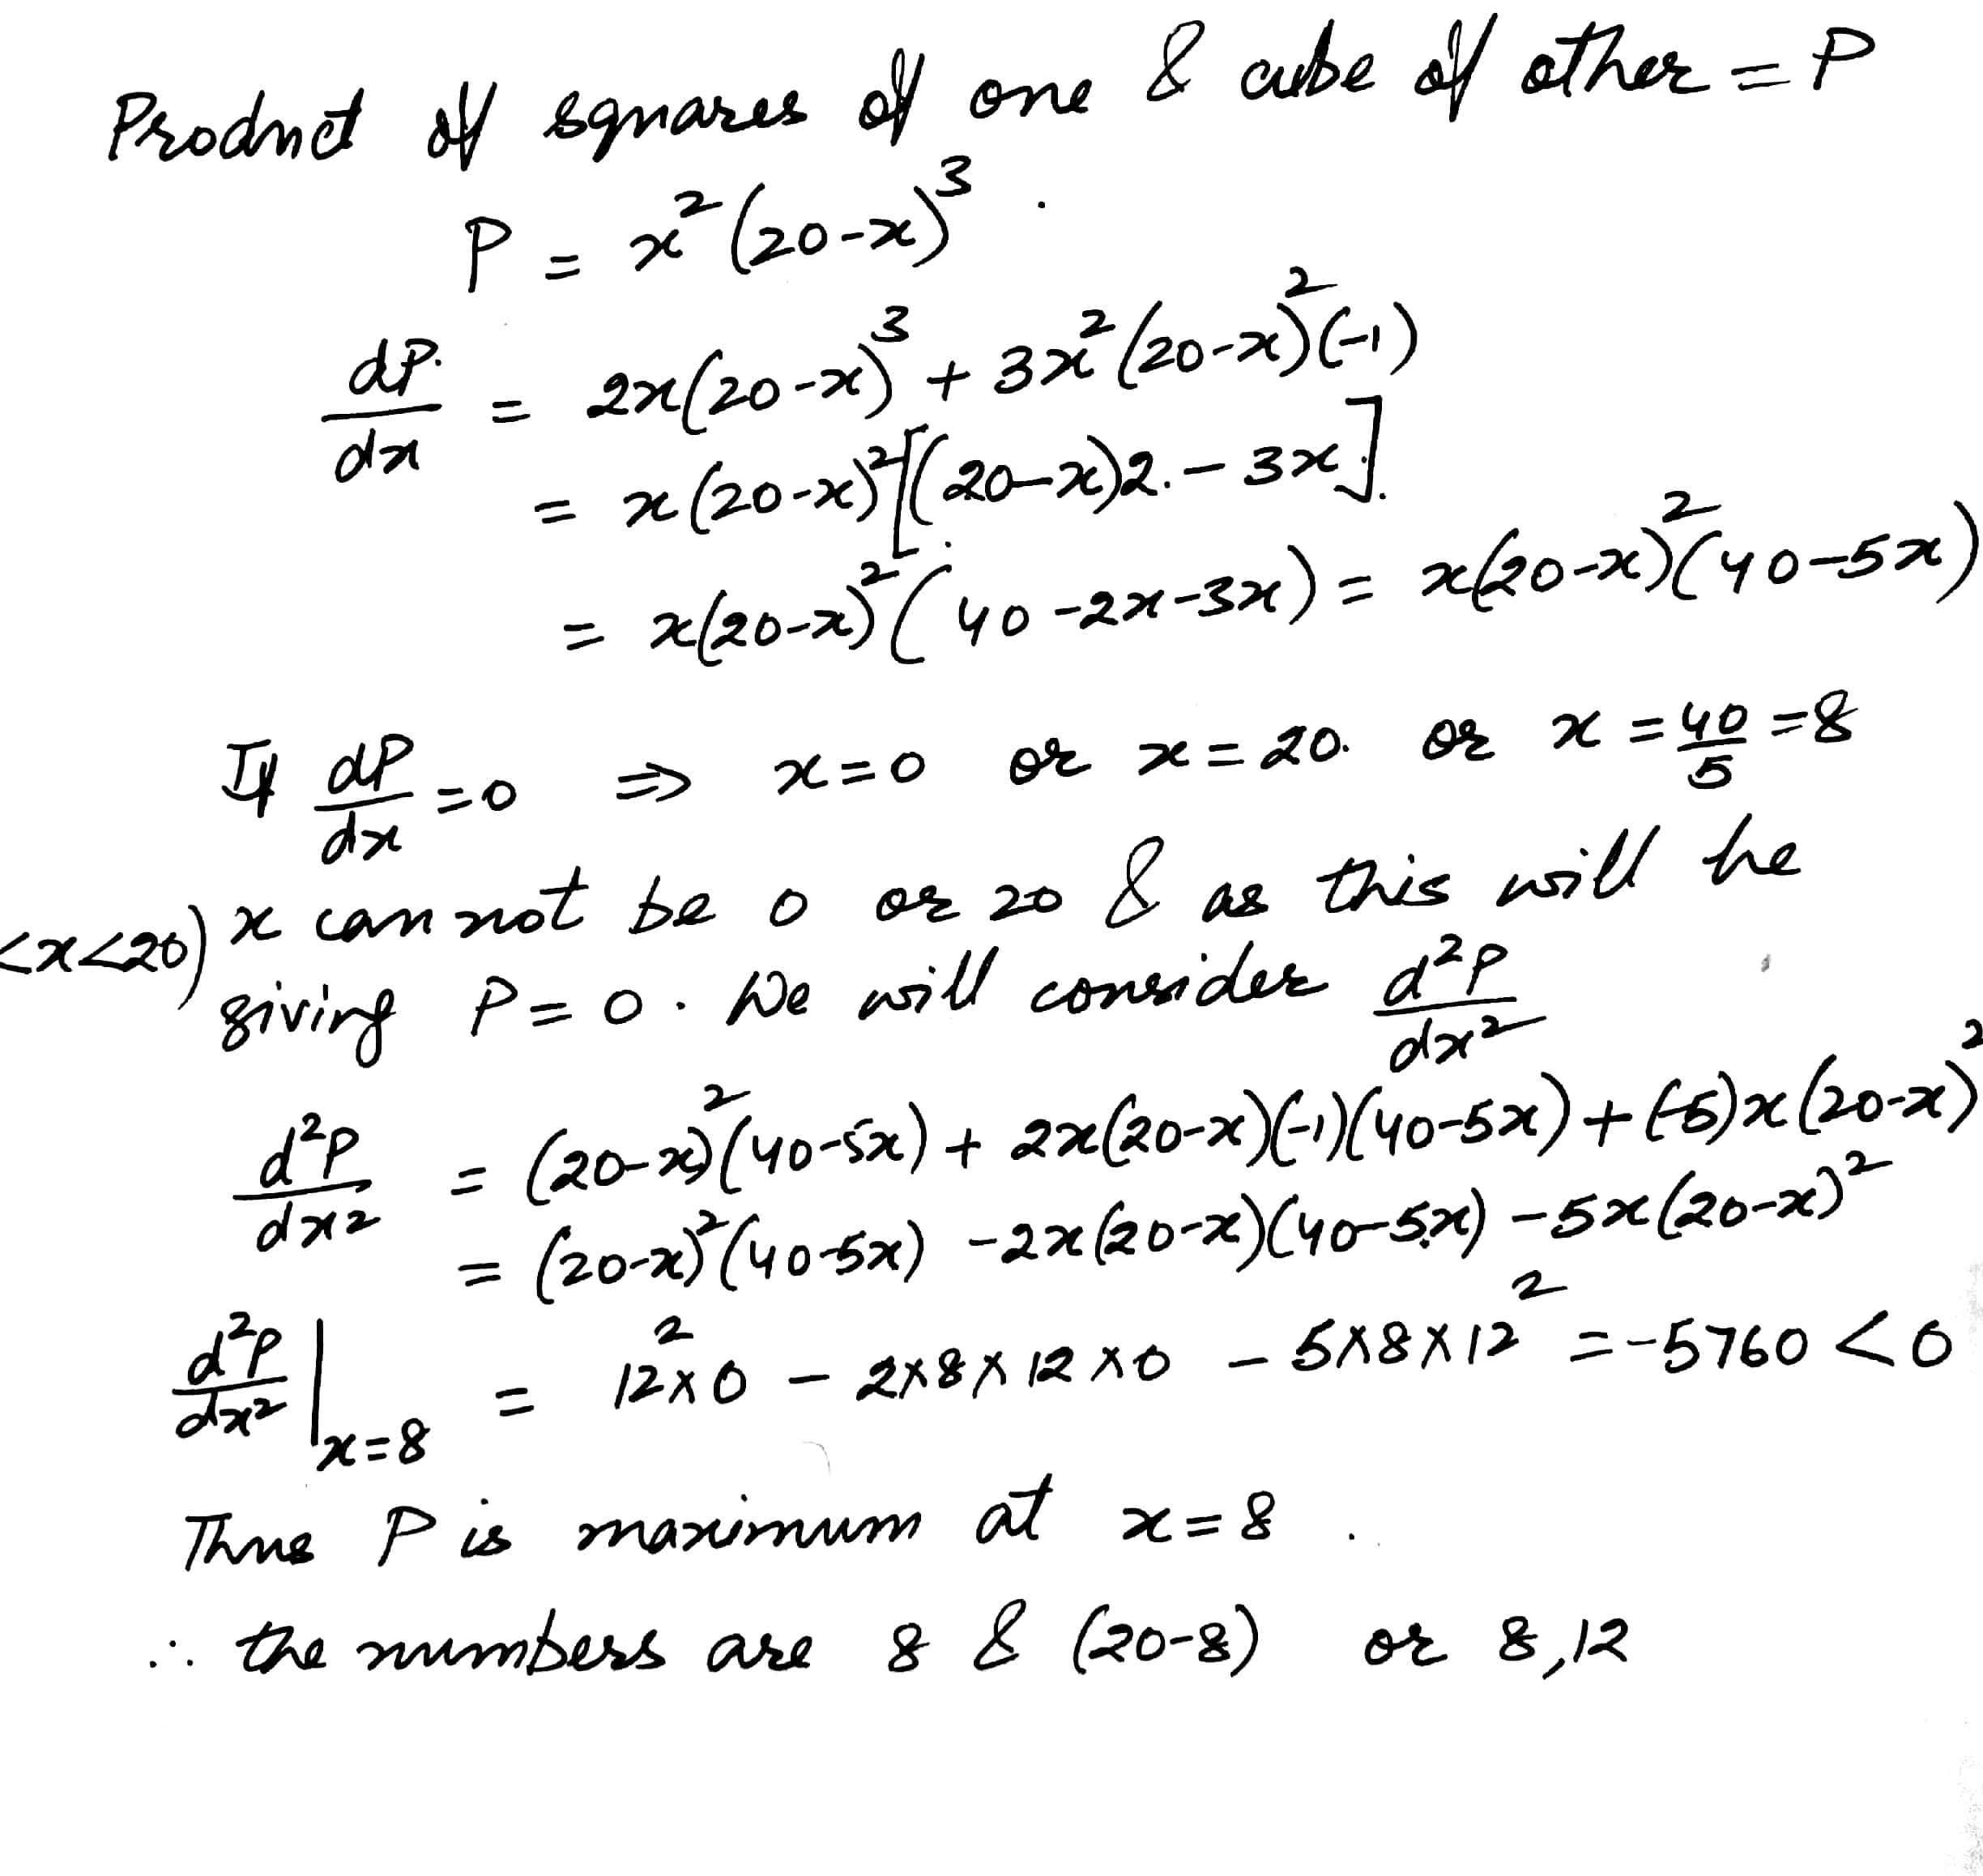 Product of squares of one & cube of other = P
P = x²(20-x)³.
dP/dx = 2x(20-x)³ + 3x²(20-x)²(-1)
= x(20-x)²[(20-x)2. - 3x].
= x(20-x)²(40-2x-3x) = x(20-x)²(40-5x)
If dP/dx = 0 ⇒ x=0 or x=20. or x = 40/5 = 8
<x<20) x can not be 0 or 20 & as this will be
giving P=0. We will consider d²P/dx²
d²P/dx² = (20-x)²(40-5x) + 2x(20-x)(-1)(40-5x) + (-5)x(20-x)²
= (20-x)²(40-5x) - 2x(20-x)(40-5x) - 5x(20-x)²
d²P/dx²|x=8 = 12²×0 - 2×8×12×0 - 5×8×12² = -5760 < 0
Thus P is maximum at x=8.
∴ the numbers are 8 & (20-8) or 8,12